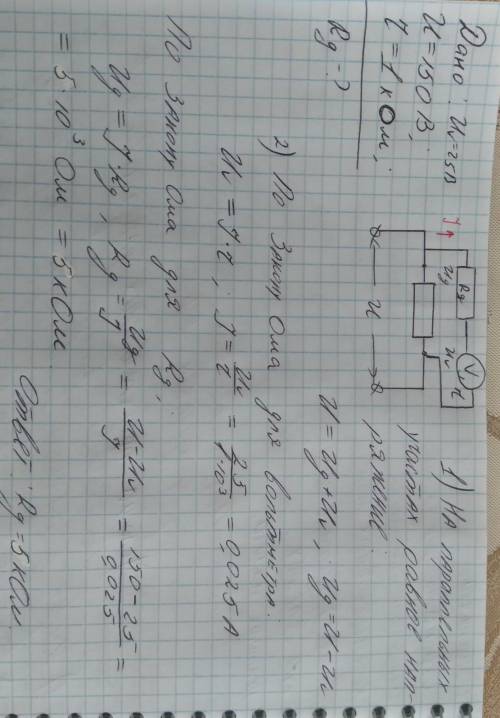 Дано: Uv=25В
U=150 В;
r=1 кОм;
Rg-?
I
Rg
V
r
Ug
Uv
U
1) На параллельных
участках равное нап-
ряжение:
U=Ug+Uv, Ug=U-Uv
2) По Закону Ома для вольтметра:
Uv=I·r, I=Uv/r=25/1·10³=0,025 А
По Закону Ома для Rg,
Ug=I·Rg, Rg=Ug/I=U-Uv/I=150-25/0,025=
=5·10³ Ом=5кОм.
Ответ: Rg=5 кОм.